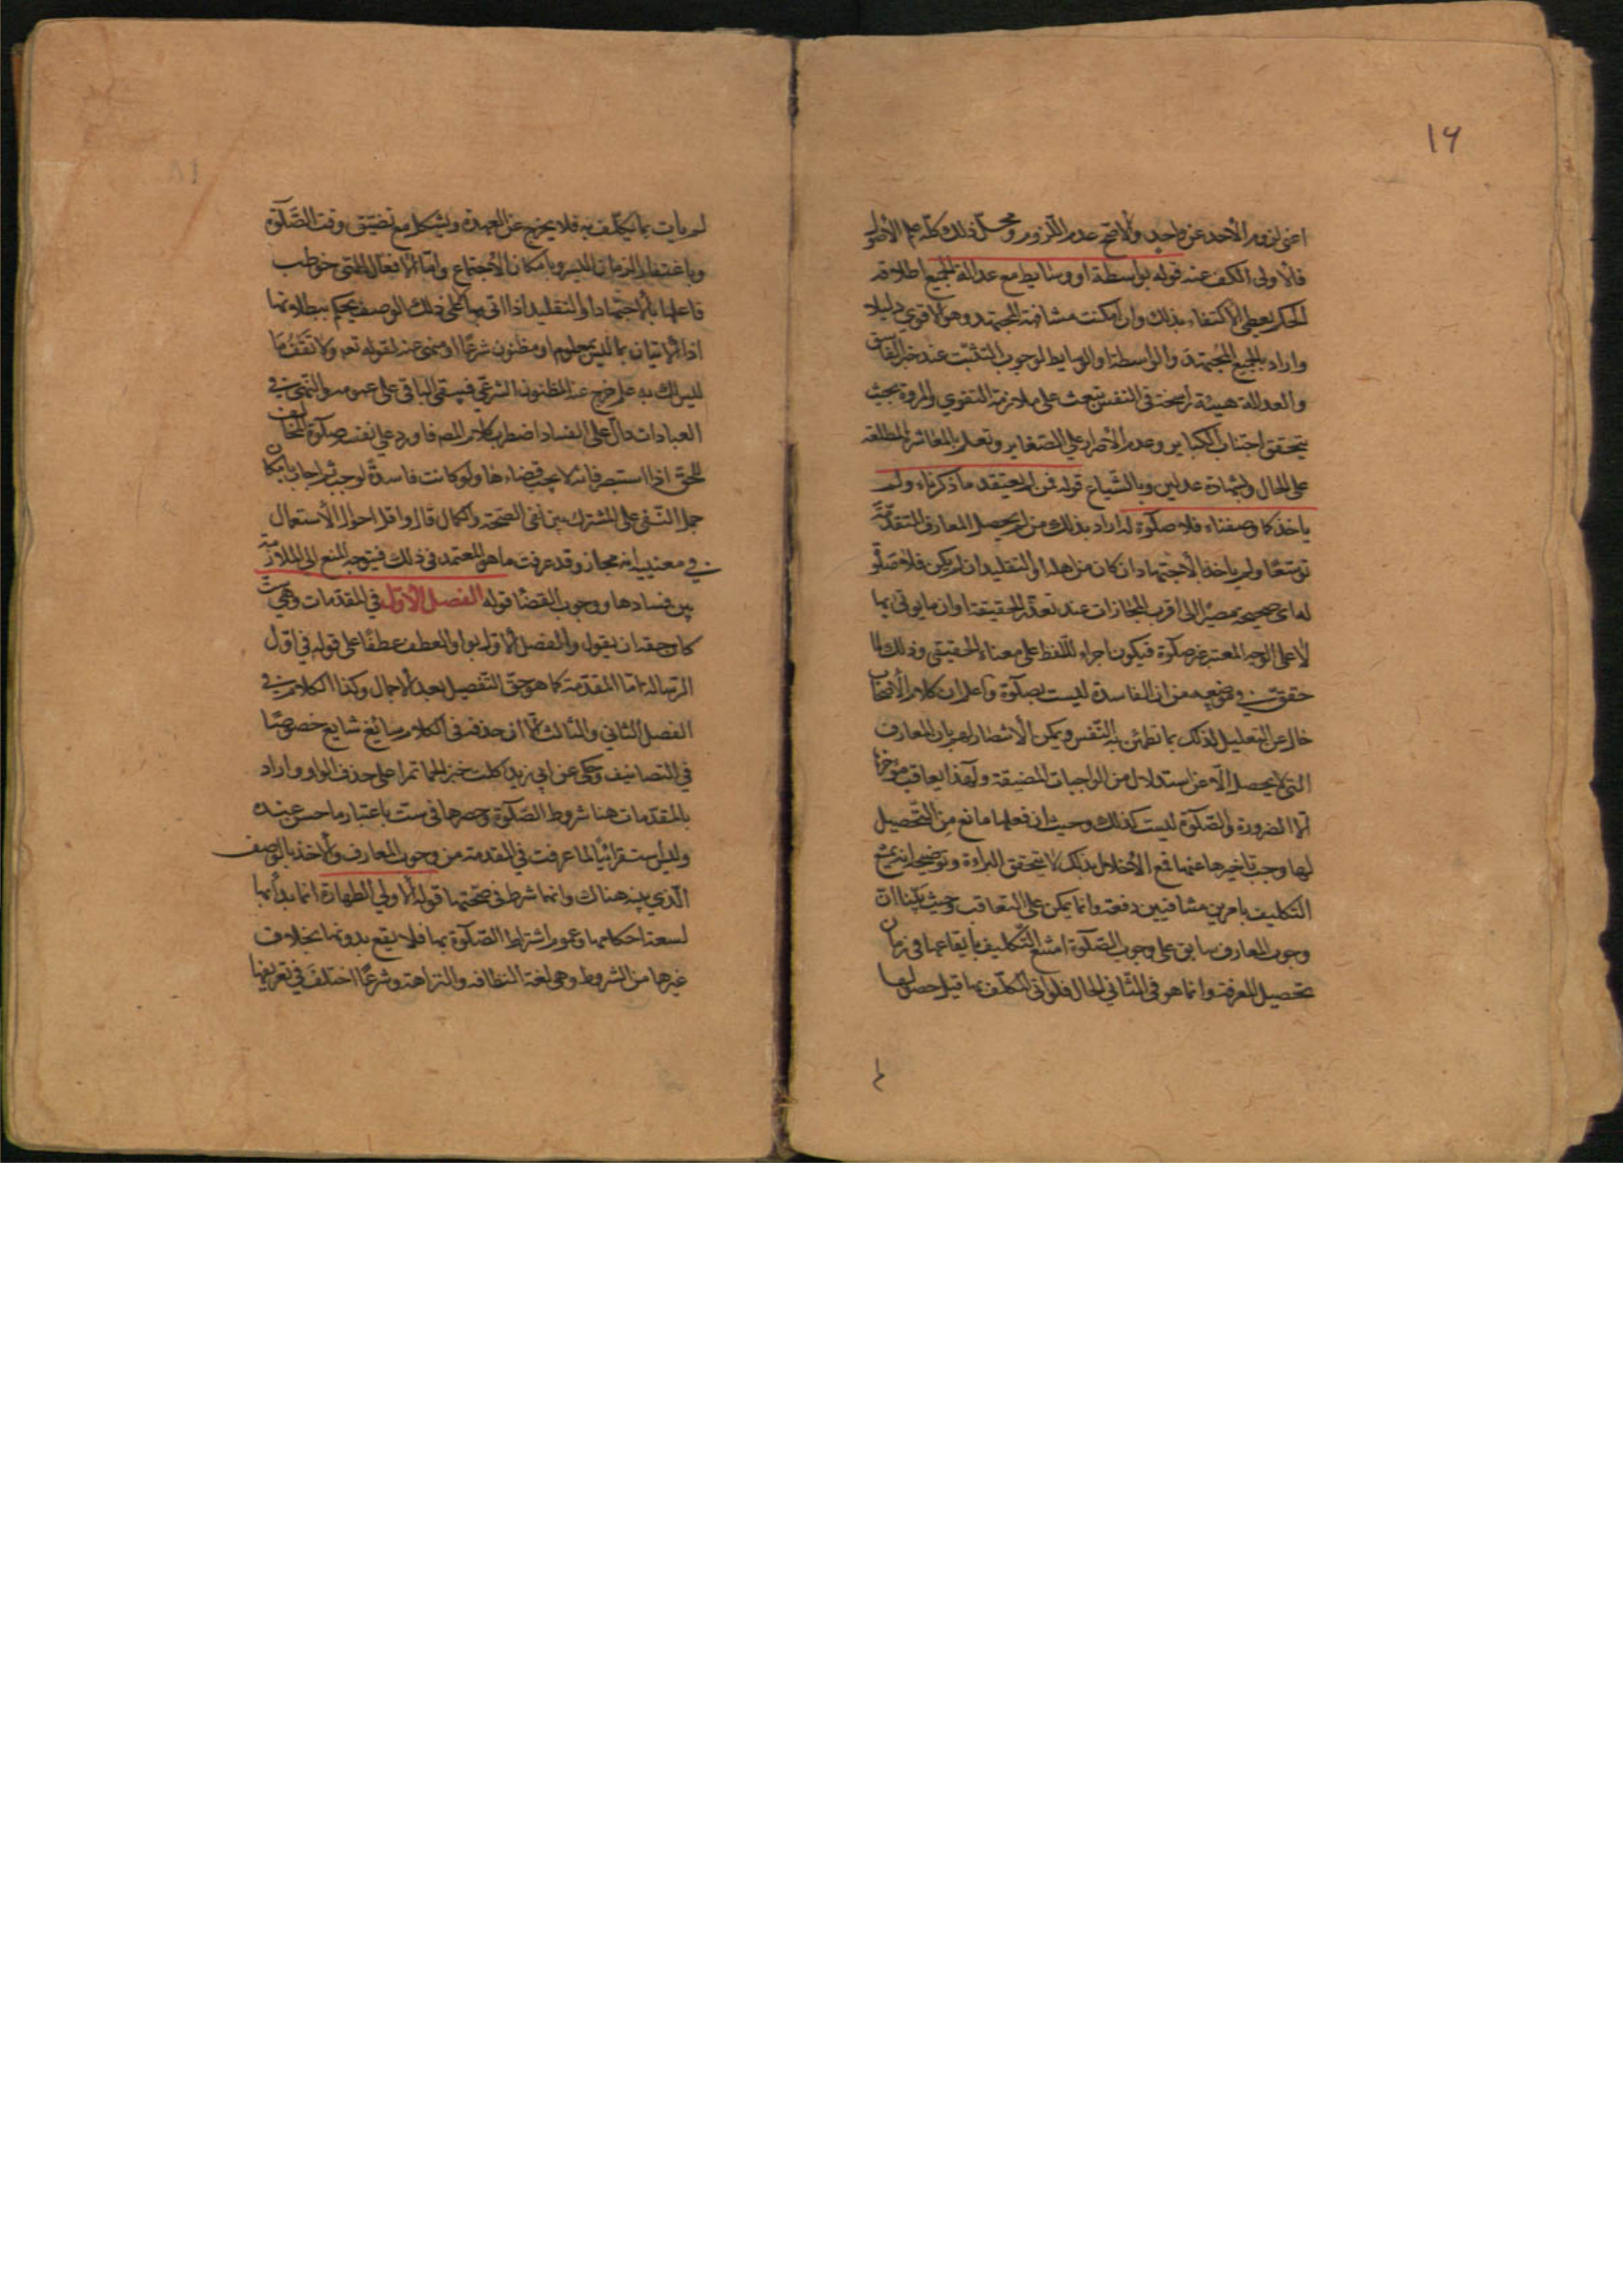 ١٦
اعنى لزوم الأخذ عن واحد والأصح عدم اللزوم ومحل ذلك كله علم الأصول
فالأولى الكف عنه قوله بواسطة او وسايط مع عدالة الجميع اطلاقه
الحكم يعطى الاكتفاء بذلك وان امكنت مشافهة المجتهد وهو الاقوى دليلا
واراد بالجميع المجتهد والواسطة او الوسايط لوجوب التثبت عند خبر الفاسق
والعدالة هيئة راسخة فى النفس تبعث على ملازمة التقوى والمروة بحيث
يتحقق اجتناب الكباير وعدم الأصرار على الصغاير وتعلم بالمعاشرة المطلعة
على الحال وبشهادة عدلين وبالشياع قوله فمن لم يعتقد ما ذكرناه ولم
ياخذ كما وصفناه فلا صلوة له اراد بذلك من لم يحصل المعارف المتقدمة
توسعا ولم ياخذ بالأجتهاد ان كان من اهله او التقليد ان لم يكن فلا صلوة
له اى صحيحة مصيرا الى اقرب المجازات عند تعذر الحقيقة او ان ما يوتى بها
لا على الوجه المعتبر غير صلوة فيكون اجراء للفظ على معناه الحقيقى وذلك لما
حقق في موضعه من ان الفاسدة ليست بصلوة واعلم ان كلام الأصحاب
خال عن التعليل لذلك بما تطمئن به النفس ويمكن الأنتصار لهم بان المعارف
التى لا يحصل الا عن استدلال من الواجبات المضيقة ولهذا يعاقب مؤخرها
الا لضرورة والصلوة ليست كذلك وحيث ان فعلها مانع من التحصيل
لها وجب تاخيرها عنها فمع الأخلال بذلك لا يتحقق البراءة وتوضيحه انه يمتنع
التكليف بامرين متنافيين دفعة وانما يمكن على التعاقب وحيث بينا ان
وجوب المعارف سابق على وجوب الصلوة امتنع التكليف بايقاعها فى زمان
تحصيل المعرفة وانما هو فى الثانى الحال فلو اتى المكلف بها قبل حصولها
لم
لم يات بما يكلف به فلا يخرج عن العهدة ويشكل مع تضيق وقت الصلوة
وباغتفار الزمان اليسير وبامكان الأجتماع واما الافعال التى خوطب
فاعلها بالاجتهاد او التقليد اذا اتى بها على ذلك الوصف يحكم ببطلانها
اذ الاتيان بما ليس بمعلوم او مظنون شرعا او منهى عنه لقوله تعم ولا تقف ما
ليس لك به علم خرج عنه المظنون الشرعي فيبقى الباقى على عمومه والنهى في
العبادات دال على الفساد اضطرب كلام المصم فاورد على نفسه صلوة المخالف
للحق اذا استبصر فانه لا يجب قضاءها ولو كانت فاسدة لوجب ثم اجاب بامكان
حمل النفى على المشترك بين نفى الصحة والكمال قال واقل احوال الأستعمال
في معنييه انه مجاز وقد عرفت ما هو المعتمد فى ذلك فيتوجه المنع الى الملازمة
بين فسادها ووجوب القضا قوله الفصل الأول في المقدمات وهى ست
كان حقه ان يقول والفصل الاول بواو العطف عطفا على قوله فى اول
الرسالة اما المقدمة كما هو حق التفصيل بعد الاجمال وكذا الكلام في
الفصل الثاني والثالث الا ان حذفه فى الكلام سائغ شايع خصوصا
في التصانيف وحكى عن ابى زيد اكلت خبزا لحما تمرا على حذف الواو واراد
بالمقدمات هنا شروط الصلوة وحصرها فى ست باعتبار ما حسن عنده
وليس استقرائيا لما عرفت في المقدمة من وجوب المعارف والأخذ بالوصف
الذى بينه هناك وانها شرط فى صحتها قوله الاولى الطهارة انما بدأ بها
لسعة احكامها وعموم اشتراط الصلوة بها فلا يقع بدونها بخلاف
غيرها من الشروط وهى لغة النظافة والنزاهة وشرعا اختلف في تعريفها